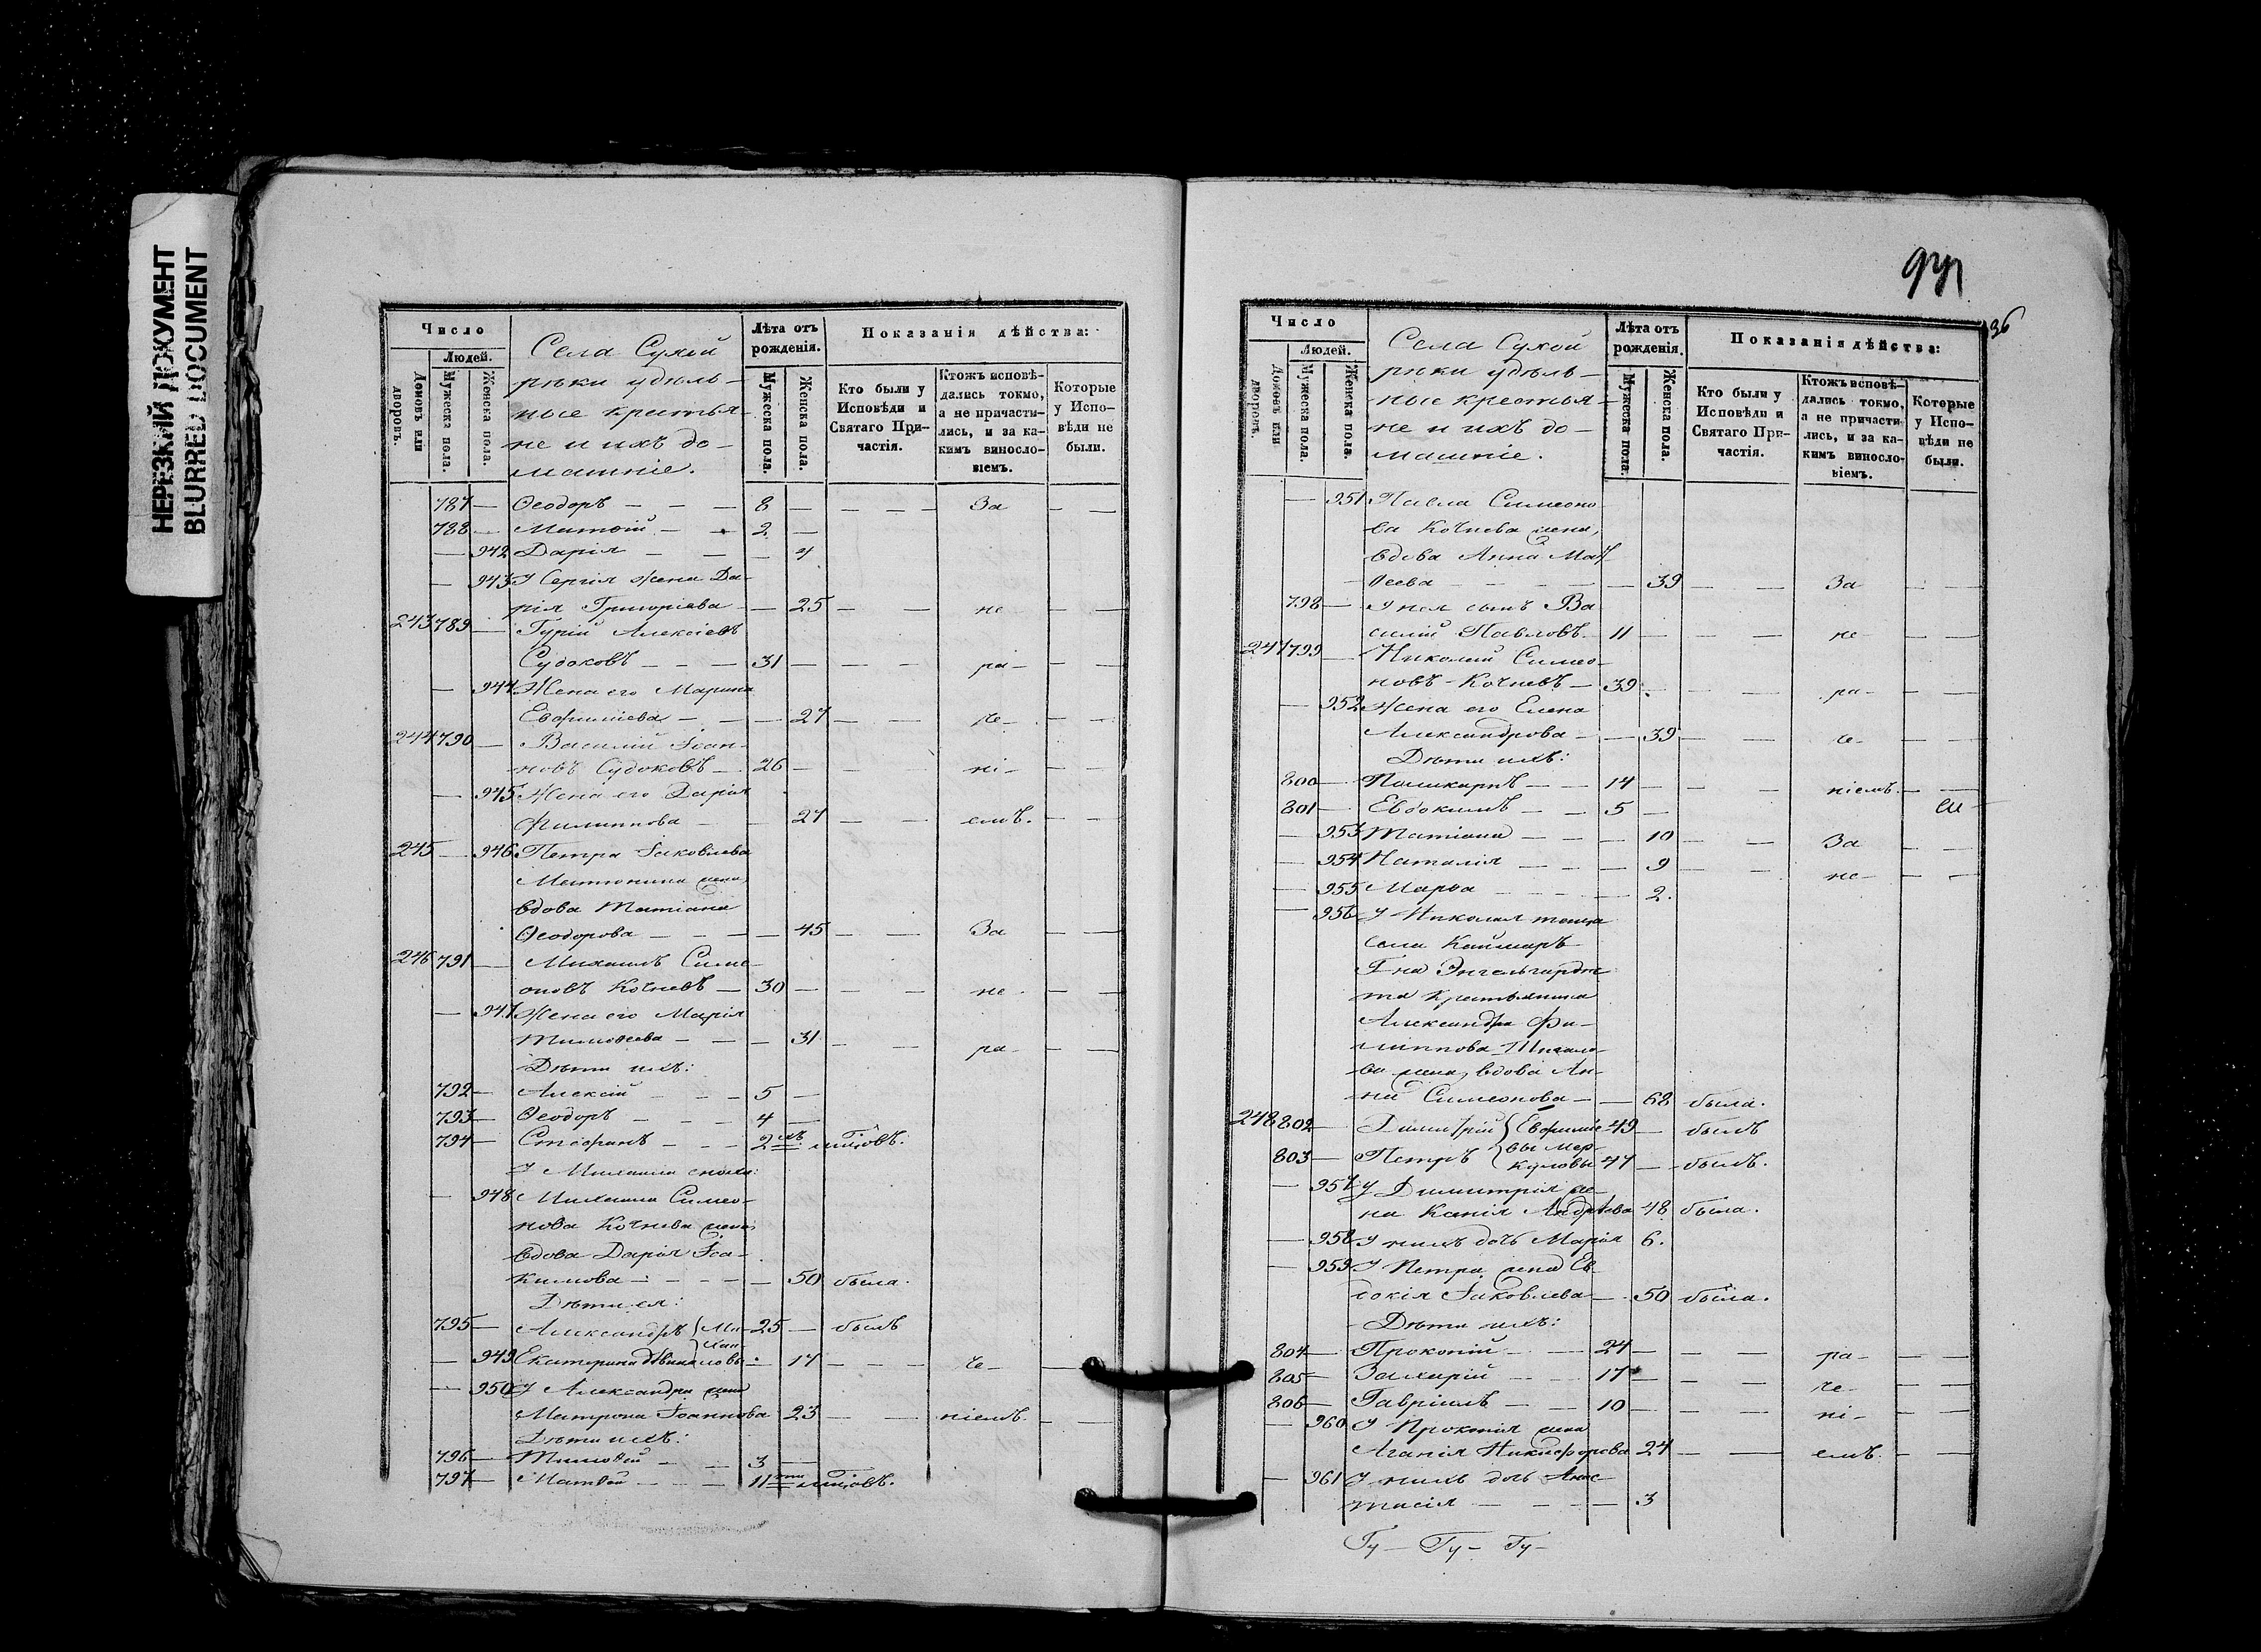 НЕРЕЗКИЙ ДОКУМЕНТ
BLURRED DOCUMENT
Число
Людей.
Домовъ или дворовъ.
Мужеска пола.
Женска пола.
Села Сухой
рѣки удѣль-
ные крестья-
не и ихъ до-
машніе.
Лѣта отъ рожденія.
Мужеска пола.
Женска пола.
Показанія дѣйства:
Кто были у Исповѣди и Святаго При-частія.
Ктожъ исповѣ-дались токмо, а не причасти-лись, и за ка-кимъ винослo-віемъ.
Которые у Испо-вѣди не были.
787 — Ѳеодоръ — — — 8 — — — — За — —
788 — Матѳій — — 2 —
— 942 Дарія — — — 4
— 943 У Сергія жена Да-
рія Григоріева — — 25 — — не — —
243 789 — Гурій Алексіевъ
Судоковъ — — — 31 — — — ра — — —
— 944 Жена его Марина
Евфиміева — — — 27 — — че — — —
244 790 — Василій Іоан-
новъ Судоковъ — 26 — — — ні — — —
— 945 Жена его Дарія
Филиппова — — 27 — — емъ. — —
245 — 946 Петра Іаковлева
Матюнина жена,
вдова Татіана
Ѳеодорова — — — — 45 — — За — —
246 791 — Михаилъ Симе-
оновъ Кочневъ — 30 — — — не — — —
— 947 Жена его Марія
Тимоѳеева — — — 31 — — ра — — —
Дѣти ихъ:
792 — Алексій — — — 5 —
793 — Ѳеодоръ — — — 4 —
794 — Стефанъ — — — 2хъ мцовъ.
У Михаила сноха:
— 948 Михаила Симео-
нова Кочнева жена,
вдова Дарія Іоа-
кимова — — — — — 50 была.
Дѣти ея:
795 — Александръ { Ми- 25 — былъ
хаи-
— 949 Екатерина дѣвица ловы — 17 — — — че — —
— 950 У Александра жена
Матрона Іоаннова 23 — — ніемъ. — —
Дѣти ихъ:
796 — Тимоѳей — — 3 —
797 — Матѳей — — — 11ти мцовъ.
36
Число
Людей.
Домовъ или дворовъ.
Мужеска пола.
Женска пола.
Села Сухой
рѣки удѣль-
ные крестья-
не и ихъ до-
машніе.
Лѣта отъ рожденія.
Мужеска пола.
Женска пола.
Показанія дѣйства:
Кто были у Исповѣди и Святаго При-частія.
Ктожъ исповѣ-дались токмо, а не причасти-лись, и за ка-кимъ винослo-віемъ.
Которые у Испо-вѣди не были.
— 951 Павла Симеоно-
ва Кочнева жена,
вдова Анна Мат-
ѳеева — — — — — 39 — — За — —
798 — У нея сынъ Ва-
силій Павловъ. 11 — — — не — — —
247 799 — Николай Симео-
новъ Кочневъ — 39 — — — ра — — —
— 952 Жена его Елена
Александрова — — 39 — — че — — —
Дѣти ихъ:
800 — Поликарпъ — — 14 — — — ніемъ. — —
801 — Евдокимъ — — 5 —
— 953 Татіана — — — 10 — — За — —
— 954 Наталія — — — 9 — — не — — —
— 955 Марѳа — — — — 2.
— 956 У Николая теща
села Каймаръ
Г-на Энгельгардта
крестьянина
Александра Фи-
липпова
жена, вдова Ан-
на Симеонова — — 68 была.
248 802 — Димитрій { Евфиміе- 49 — былъ
803 — Петръ вы Мер-
куловы 47 — былъ.
— 957 У Димитрія же-
на Ксенія Андреева 48 была.
— 958 У нихъ дочь Марія 6.
— 959 У Петра жена Ев-
докія Іаковлева — 50 была.
Дѣти ихъ:
804 — Прокопій — — 24 — — — ра — — —
805 — Захарій — — 17 — — — че — — —
806 — Гавріилъ — — 10 — — — ні — — —
— 960 У Прокопія жена
Агапія Никифорова 24 — — емъ. — —
— 961 У нихъ дочь Анас-
тасія — — — — 3
Гу — Гу — Гу —